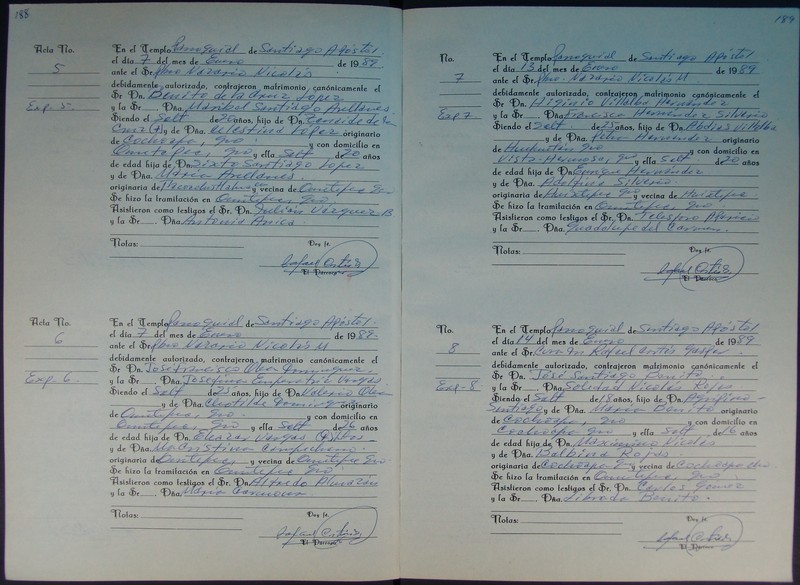 188
Acta No.
5
Exp. 5.
En el Templo Parroquial de Santiago Apóstol.
el día 7 del mes de Enero de 1989
ante el Sr. Pbro Nazario Nicolás
debidamente autorizado, contrajeron matrimonio canónicamente el
Sr. Dn. Benito de la Cruz Lopez
y la Sr. Dña. Maribel Santiago Arellanes
Siendo el Solt de 20 años, hijo de Dn. de la
Cruz (+) y de Dña. Celestina Lopez originario
de Cochoapa, Gro y con domicilio en
Ometepec, Gro y ella Solt de 20 años
de edad hija de Dn. Sixto Santiago Lopez
y de Dña. Maria Arellanes
originaria de y vecina de Ometepec Gro
Se hizo la tramitación en Ometepec, Gro
Asistieron como testigos el Sr. Dn. Julián Vázquez B
y la Sr. Dña. Antonia
Notas:
Doy fe.
Rafael Cortés
El Párroco
Acta No.
6
Exp. 6.
En el Templo Parroquial de Santiago Apóstol
el día 7 del mes de Enero de 1989.
ante el Sr. Pbro Nazario Nicolás M
debidamente autorizado, contrajeron matrimonio canónicamente el
Sr. Dn. Dominguez
y la Sr. Dña. Josefina Vargas
Siendo el Solt de años, hijo de Dn. Valerio
y de Dña. Clotilde originario
de Ometepec, Gro. y con domicilio en
Ometepec, Gro y ella Solt de 26 años
de edad hija de Dn. Eleazar Vargas
y de Dña.
originaria de Ometepec y vecina de Ometepec Gro
Se hizo la tramitación en Ometepec Gro
Asistieron como testigos el Sr. Dn. Alfredo Almazán
y la Sr. Dña. Maria
Notas:
Doy fe.
Rafael Cortés
El Párroco
189
No.
7
Exp 7
En el Templo Parroquial de Santiago Apóstol
el día 13 del mes de Enero de 1989
ante el Sr. Pbro. Nazario Nicolás M
debidamente autorizado, contrajeron matrimonio canónicamente el
Sr. Dn. Higinio Villalba Hernández
y la Sr. Dña. Francisca Hernández Silverio
Siendo el Solt de 25 años, hijo de Dn. Abdías Villalba
y de Dña. Hernández originario
de Huehuetán Gro y con domicilio en
Vista Hermosa, Gro y ella Solt de 20 años
de edad hija de Dn. Hernández
y de Dña. Adolfina Silverio
originaria de Huixtepec Gro y vecina de Huixtepec
Se hizo la tramitación en Ometepec, Gro
Asistieron como testigos el Sr. Dn. Telesforo
y la Sr. Dña. Guadalupe del Carmen.
Notas:
Doy fe.
Rafael Cortés
El Párroco
No.
8
Exp. 8
En el Templo Parroquial de Santiago Apóstol
el día 14 del mes de Enero de 1989
ante el Sr. Rafael Cortés
debidamente autorizado, contrajeron matrimonio canónicamente el
Sr. Dn. José Santiago Benito.
y la Sr. Dña. Soledad Nicolás Rojas
Siendo el Solt de 18 años, hijo de Dn. Agripino
Santiago y de Dña. Maria Benito originario
de Cochoapa, Gro y con domicilio en
Cochoapa Gro y ella Solt de 16 años
de edad hija de Dn. Maximino Nicolás
y de Dña. Balbina Rojas.
originaria de Cochoapa y vecina de Cochoapa Gro
Se hizo la tramitación en Ometepec, Gro
Asistieron como testigos el Sr. Dn. Carlos Gómez
y la Sr. Dña. Librada Benito.
Notas:
Doy fe.
Rafael Cortés
El Párroco